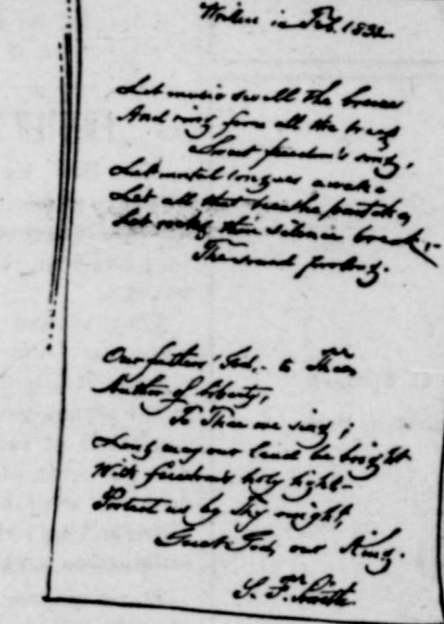 Written in Feb. 1832
Let music swell the breeze
And ring from all the trees
Sweet freedom's song,
Let mortal tongues awake
Let all that breathe partake,
Let rocks their silence break,—
The sound prolong.
Our fathers' God,— to Thee,
Author of liberty,
To Thee we sing;
Long may our land be bright
With freedom's holy light—
Protect us by Thy might,
Great God, our King.
S. F. Smith